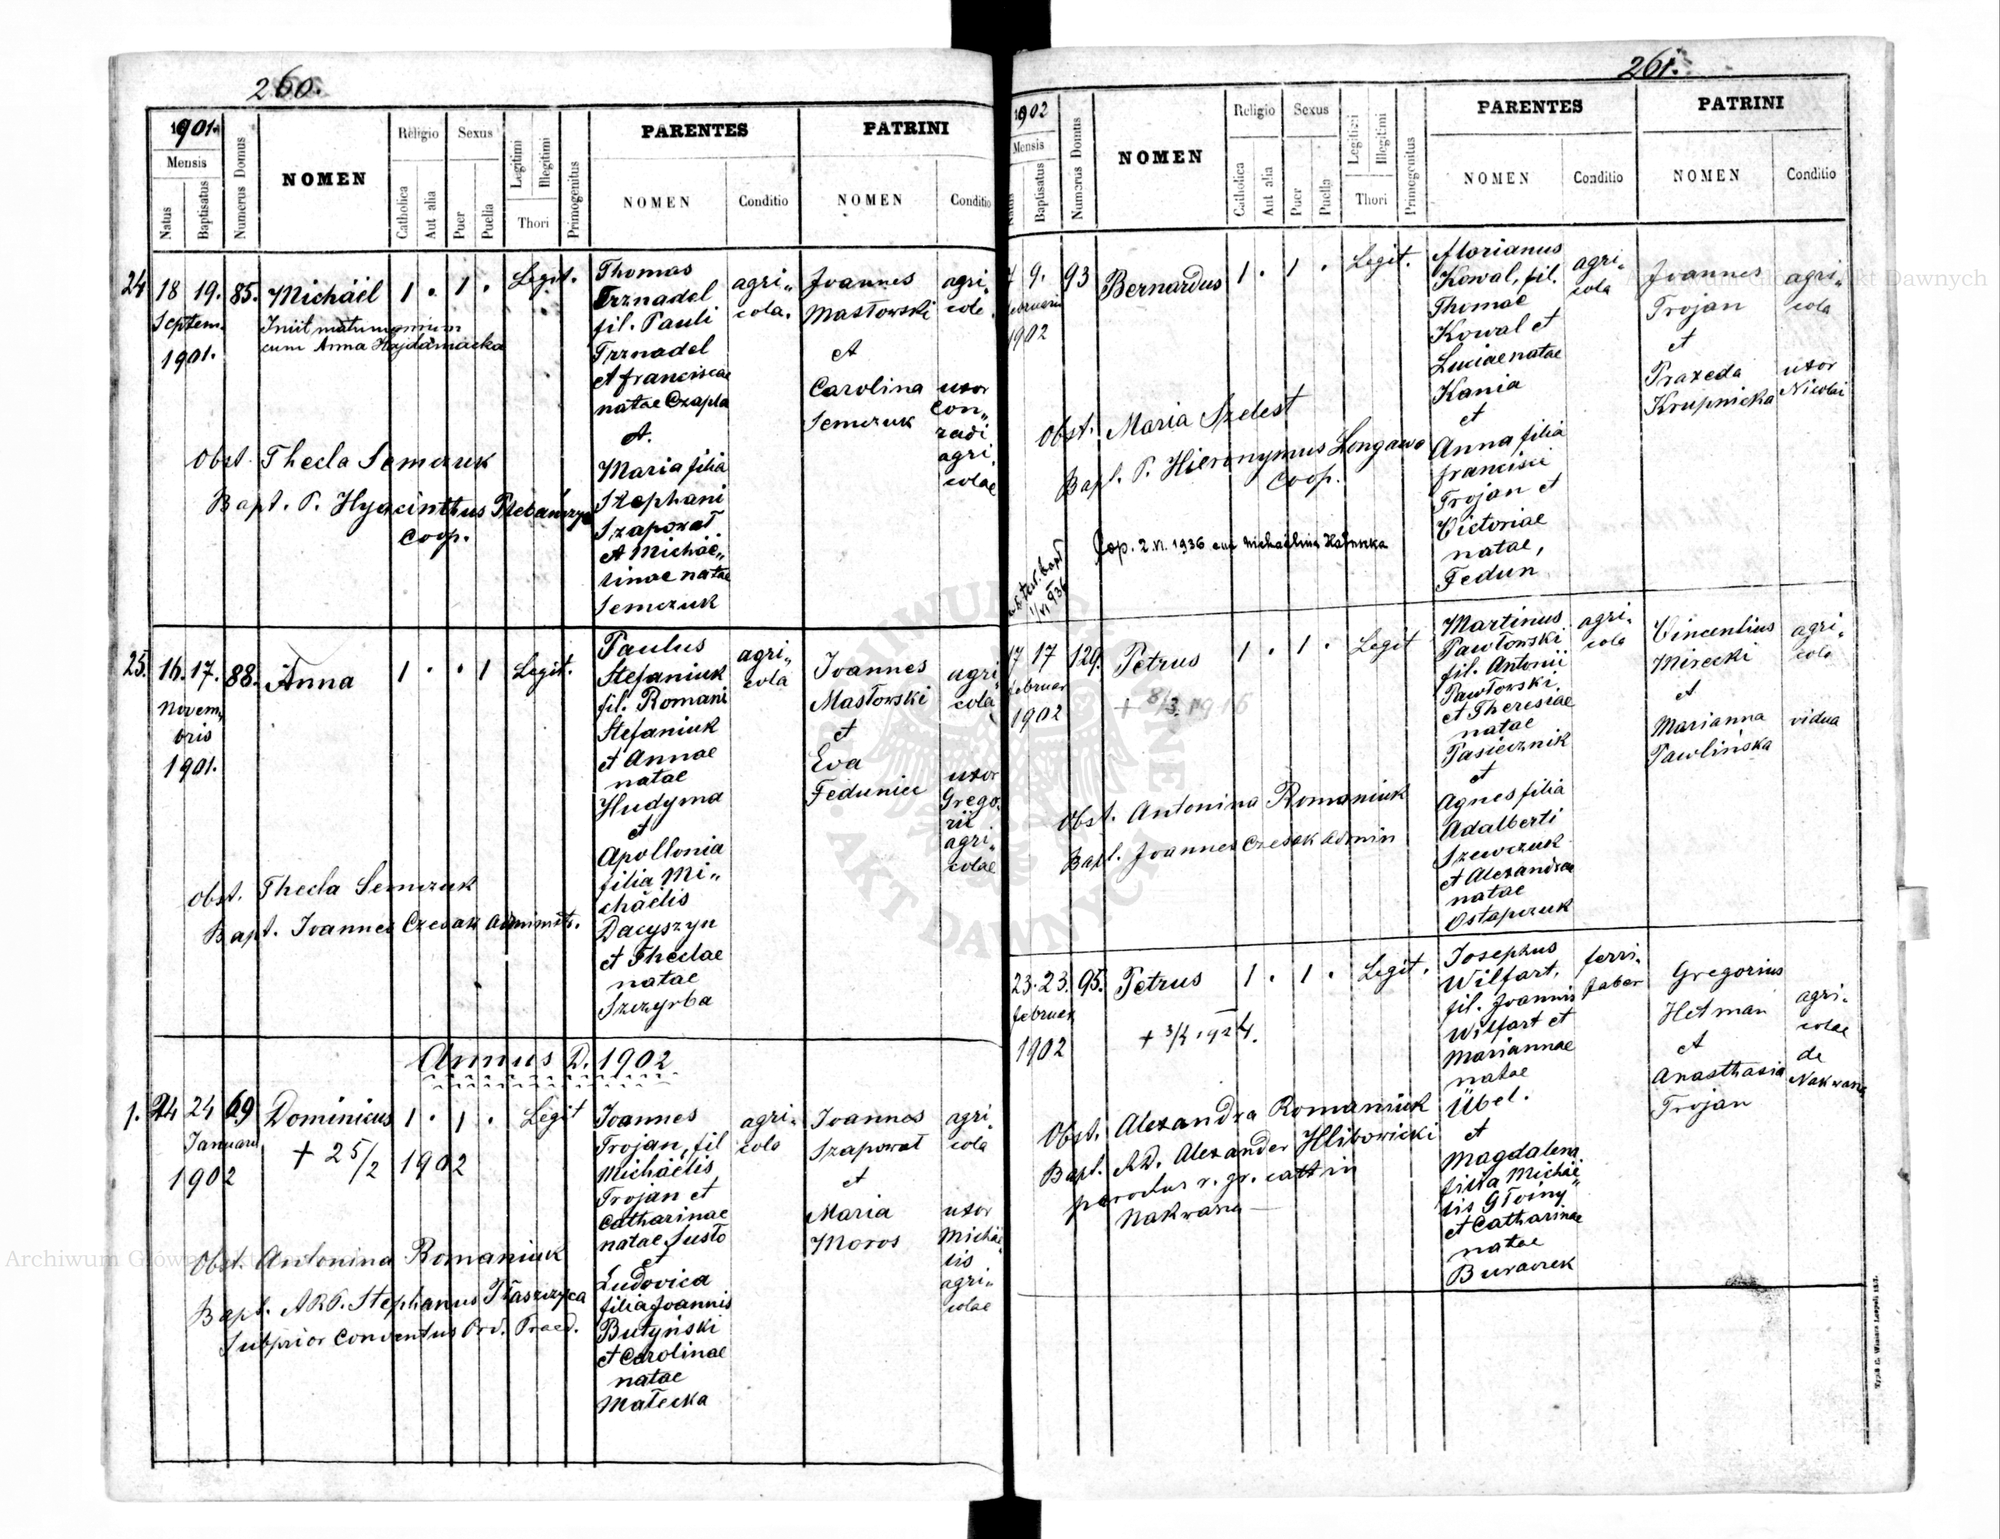 260.
1901.
Mensis
Natus
Baptisatus
Numerus Domus
NOMEN
Religio
Catholica
Aut alia
Sexus
Puer
Puella
Legitimi
Illegitimi
Thori
Primogenitus
PARENTES
NOMEN
Conditio
PATRINI
NOMEN
Conditio
24 18 19. 85. Michäel 1 . 1 . Legit.
Septem.
1901.
Iniit matrimonium
cum Anna Hajdamacka
Thomas
Trznadel
fil. Pauli
Trznadel
et franciscae
natae Czapla
et.
Maria filia
Stephani
Szaporat
et Michäe„
linae natae
Semczuk
agri„
cola.
Joannes
Masłowski
et
Carolina
Semczuk
agri„
cola.
uxor
Con„
radi
agri„
colae
Obst. Thecla Semczuk
Bapt. P. Hyacinthus
Coop.
25. 16. 17. 88. Anna 1 . . 1 Legit.
Novem„
bris
1901.
Paulus
Stefaniuk
fil. Romani
Stefaniuk
et Annae
natae
Hudyma
et
Apollonia
filia Mi„
chäelis
Dacyszyn
et Theclae
natae
Szczyrba
agri„
cola
Joannes
Masłowski
et
Eva
Feduniu
agri„
cola
uxor
Grego„
rii
agri„
colae
Obst. Thecla Semczuk
Bapt. Joannes Czesak Administr.
Annus D. 1902
1. 24 24 69 Dominicus 1 . 1 . Legit
Januarii
1902
+ 25/2 1902
Joannes
Trojan, fil
Michäelis
Trojan et
Catharinae
natae Susto
et
Ludovica
filia Joannis
Butyński
et Carolinae
natae
Małecka
agri„
cola
Joannes
Szaporat
et
Maria
Moros
agri„
cola
uxor
Michäe„
lis
agri„
colae
Obst. Antonina Romaniuk
Bapt. A.R.P. Stephanus
Subprior Conventus Ord. Praed.
261.
1902
Mensis
Natus
Baptisatus
Numerus Domus
NOMEN
Religio
Catholica
Aut alia
Sexus
Puer
Puella
Legitimi
Illegitimi
Thori
Primogenitus
PARENTES
NOMEN
Conditio
PATRINI
NOMEN
Conditio
9. 93 Bernardus 1 . 1 . Legit.
februarii
1902
Florianus
Kowal, fil.
Thomae
Kowal et
Luciae natae
Kania
et
Anna filia
francisci
Trojan et
Victoriae
natae,
Fedun,
agri„
cola
Joannes
Trojan
et
Praxeda
Krupnicka
agri„
cola
uxor
Nicolai
Obst. Maria Szelest
Bapt. P. Hieronymus Longawa
Coop.
Cop. 2.VI.1936 cum Michaëlina
test. bapt
1/VI 936
17 17 129. Petrus 1 . 1 . Legit
februar
1902
+ 8/3. 1916
Martinus
Pawłowski
fil. Antonii
Pawłowski,
et Theresiae
natae
Pasiecznik
et
Agnes filia
Adalberti
Szewczuk
et Alexandrae
natae
Ostapczuk
agri„
cola
Vincentius
Mirecki
et
Marianna
Pawlińska
agri„
cola
vidua
Obst. Antonina Romaniuk
Bapt. Joannes Czesak Admin
23. 23. 95. Petrus 1 . 1 . Legit.
februar
1902
+ 3/2 1924.
Josephus
Wilfart,
fil. Joannis
Wilfart et
Mariannae
natae
Übel.
et
Magdalena
filia Michäe„
lis Głoiny
et Catharinae
natae
Buraczek
ferri„
faber
Gregorius
Hetman
et
Anasthasia
Trojan
agri„
colae
de
Nakwasza
Obst. Alexandra Romaniuk
Bapt. A.D. Alexander Hliborvicki
parochus r. gr. catt in
Nakwasza
Archiwum Główne Akt Dawnych
ARCHIWUM GŁÓWNE AKT DAWNYCH